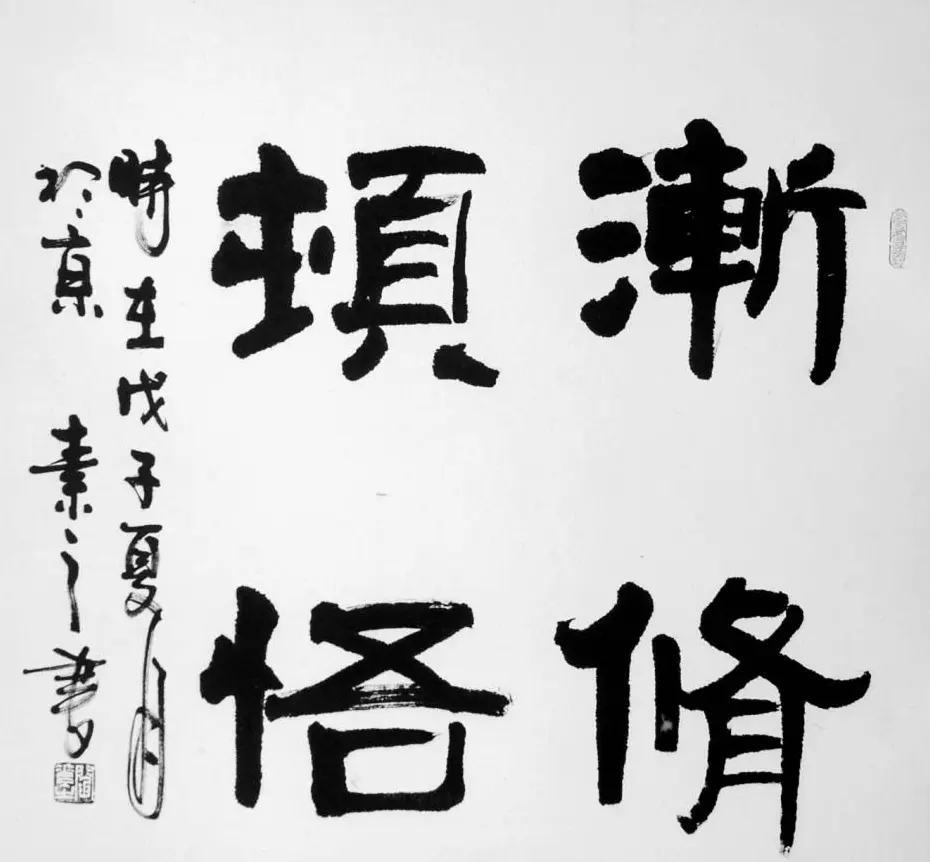 漸脩
頓悟
時在戊子夏月
於京 素之書